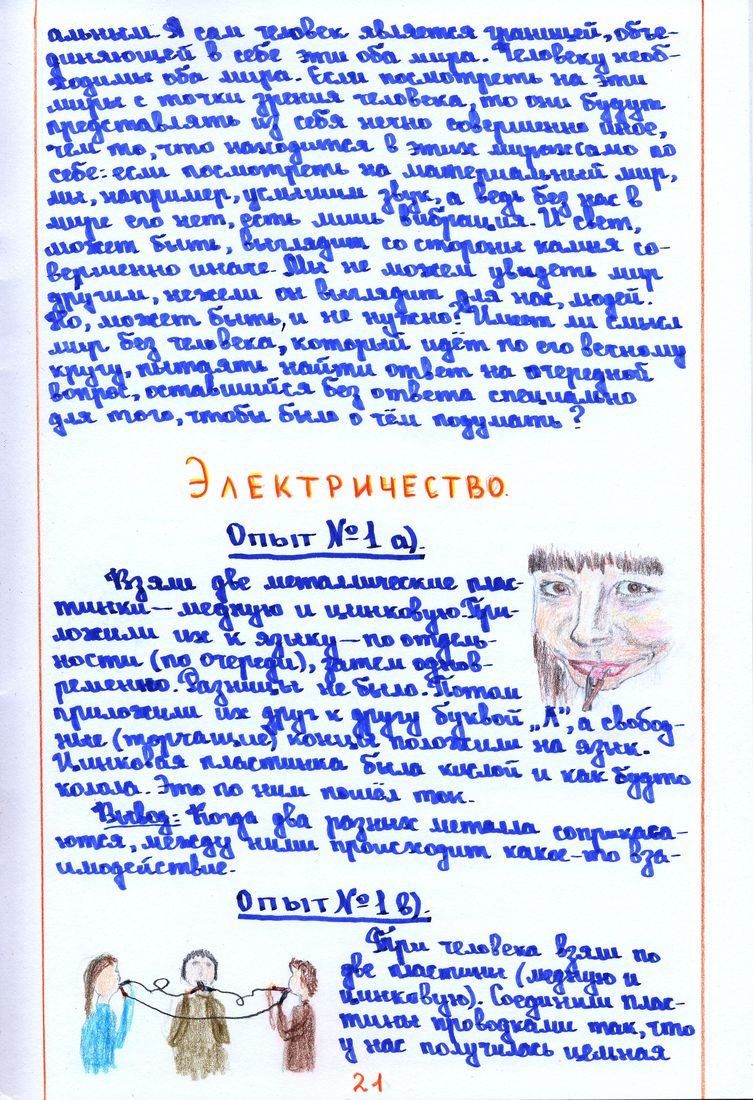 альным. Я сам человек является границей, объе-
диняющей в себе эти оба мира. Человеку необ-
ходимы оба мира. Если посмотреть на эти
миры с точки зрения человека, то они будут
представлять из себя нечно совершенно иное,
чем то, что находится в этих мирах само по
себе: если посмотреть на материальный мир,
мы, например, услышим звук, а ведь без нас в
мире его нет, есть лишь вибрация. И свет,
может быть, выглядит со стороны камня со-
вершенно иначе. Мы не можем увидеть мир
другим, нежели он выглядит для нас, людей.
Но, может быть, и не нужно? Имеет ли смысл
мир без человека, который идёт по его вечному
кругу, пытаясь найти ответ на очередной
вопрос, оставшийся без ответа специально
для того, чтобы было о чём подумать?
Электричество.
Опыт №1 а).
Взяли две металлические плас-
тинки — медную и цинковую. При-
ложили их к языку — по отдель-
ности (по очереди), затем однов-
ременно. Разницы не было. Потом
приложили их друг к другу буквой „Л", а свобод-
ные (торчащие) концы положили на язык.
Цинковая пластинка была кислой и как будто
колола. Это по ним пошёл ток.
Вывод: Когда два разных металла соприкаса-
ются, между ними происходит какое-то вза-
имодействие.
Опыт №1 в).
Три человека взяли по
две пластины (медную и
цинковую). Соединили плас-
тины проводками так, что
у нас получилась цепная
21